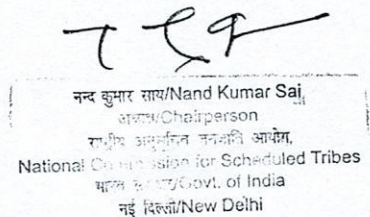 नन्द कुमार साय/Nand Kumar Sai,
अध्यक्ष/Chairperson
राष्ट्रीय अनुसूचित जनजाति आयोग,
National Commission for Scheduled Tribes
भारत सरकार/Govt. of India
नई दिल्ली/New Delhi